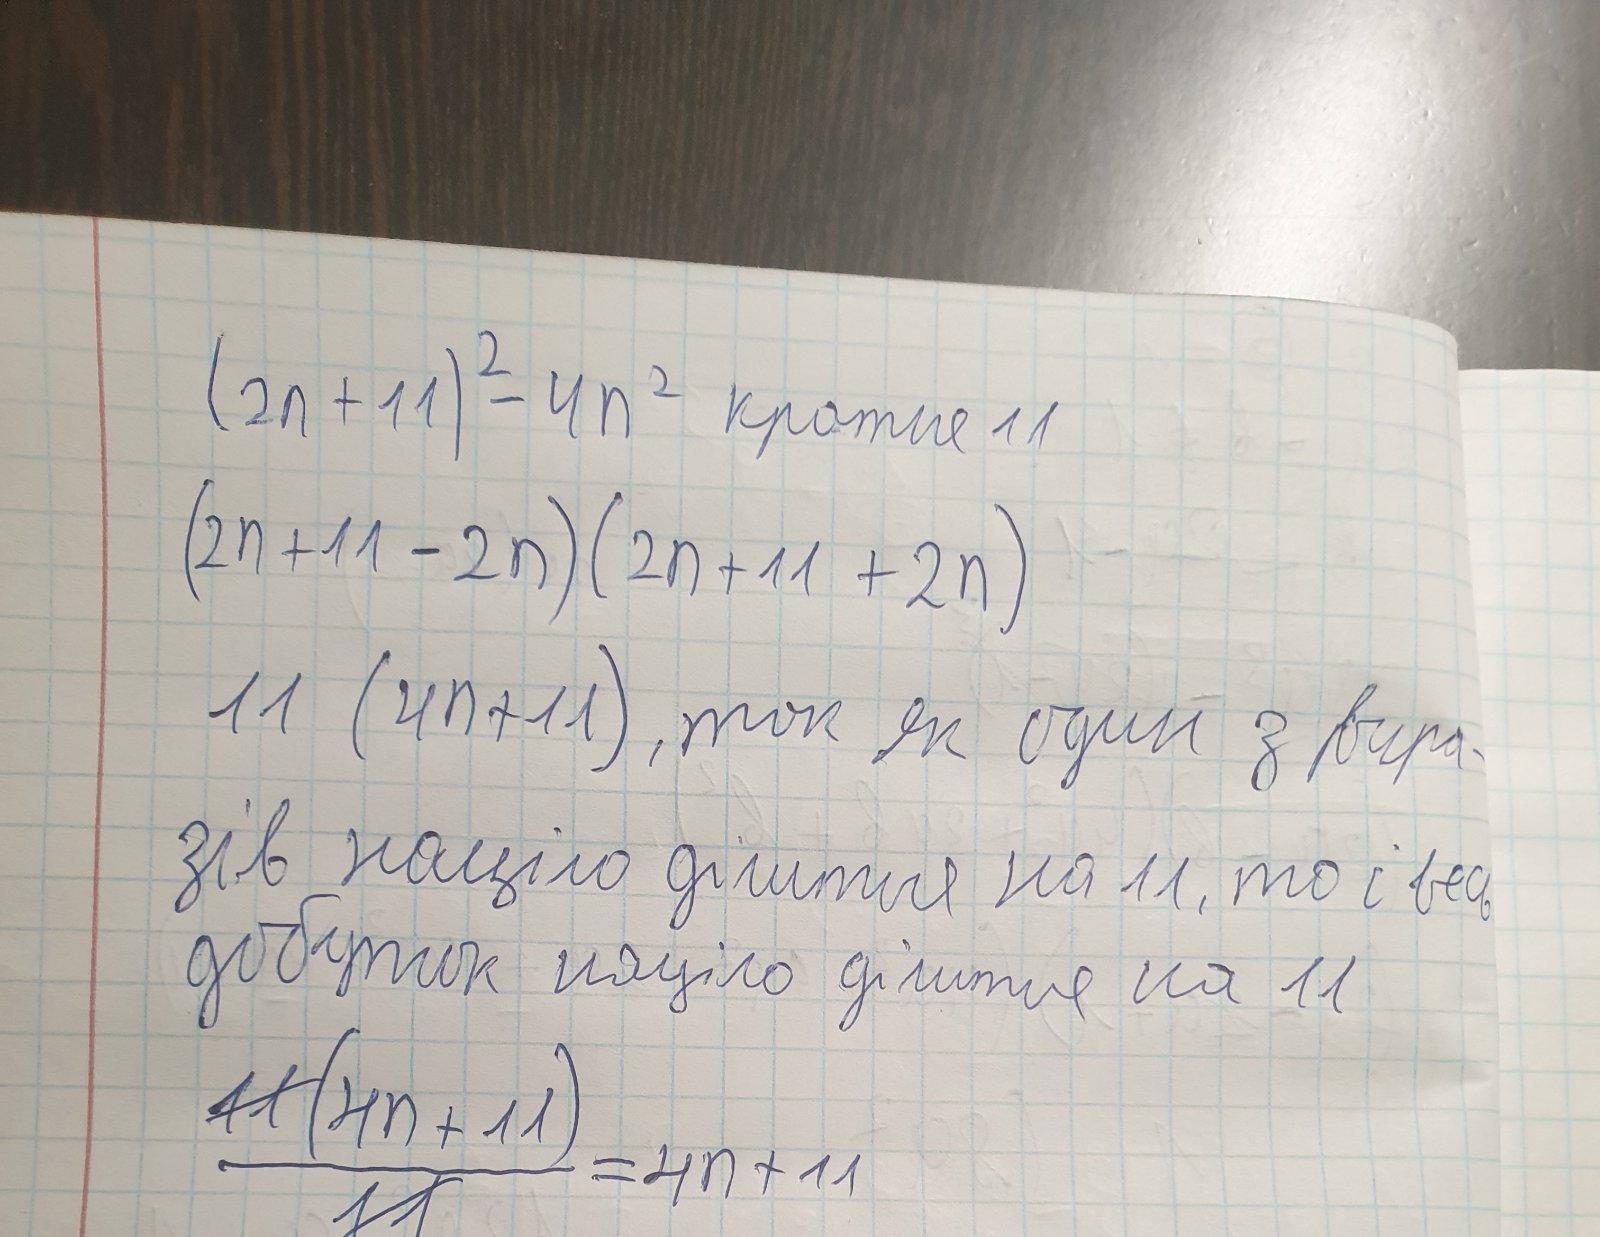 (2n+11)² - 4n² кратне 11
(2n+11-2n)(2n+11+2n)
11 (4n+11), так як один з вира-
зів націло ділиться на 11, то і весь
добуток націло ділиться на 11
11(4n+11)
11
=4n+11